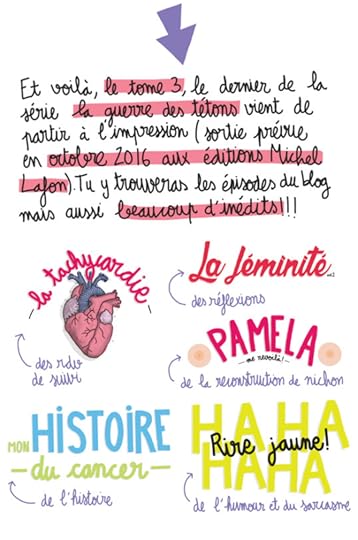 Et voilà, le tome 3, le dernier de la
série la guerre des tétons vient de
partir à l'impression (sortie prévue
en octobre 2016 aux éditions Michel
Lafon). Tu y trouveras les épisodes du blog
mais aussi beaucoup d'inédits!!!
la tachycardie
des rdv
de suivi
La féminité...
des réflexions
PAMELA
me revoilà!
de la reconstruction de nichon
MON HISTOIRE
du cancer
de l'histoire
HA HA
Rire jaune!
HAHA
de l'humour et du sarcasme